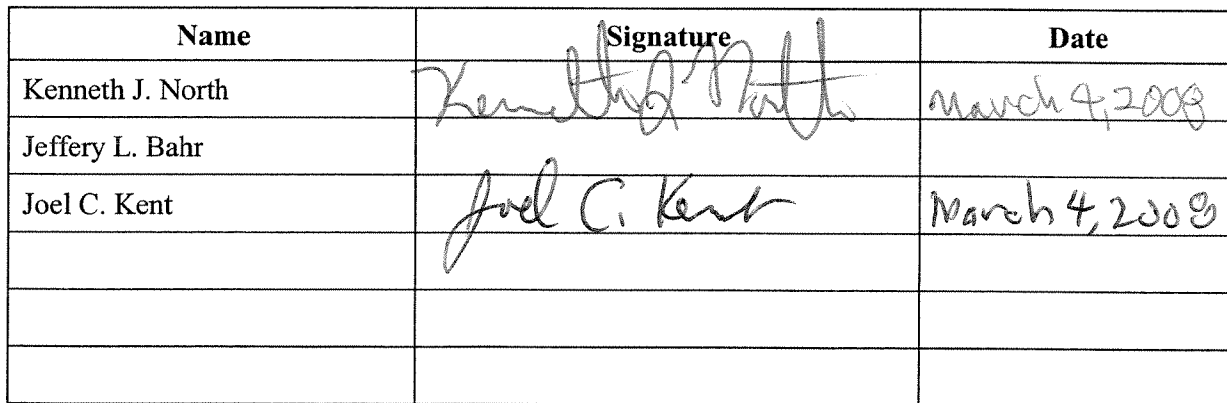 Name Signature Date
Kenneth J. North Kenneth J North March 4, 2008
Jeffery L. Bahr
Joel C. Kent Joel C. Kent March 4, 2008